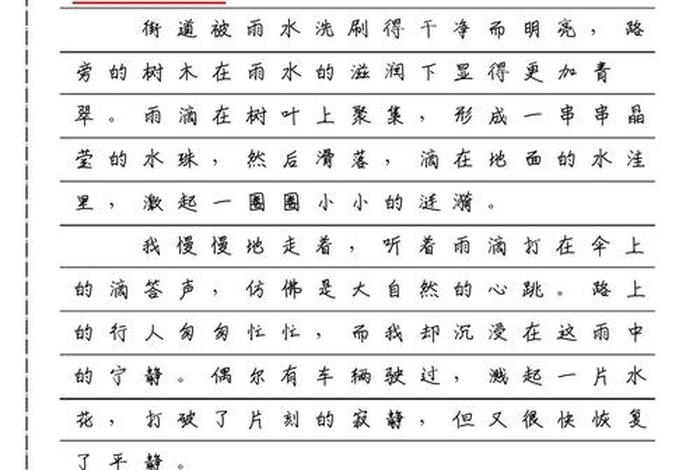 街道被雨水洗刷得干净而明亮，路
旁的树木在雨水的滋润下显得更加青
翠。雨滴在树叶上聚集，形成一串串晶
莹的水珠，然后滑落，滴在地面的水洼
里，激起一圈圈小小的涟漪。
我慢慢地走着，听着雨滴打在伞上
的滴答声，仿佛是大自然的心跳。路上
的行人匆匆忙忙，而我却沉浸在这雨中
的宁静。偶尔有车辆驶过，溅起一片水
花，打破了片刻的寂静，但又很快恢复
了平静。